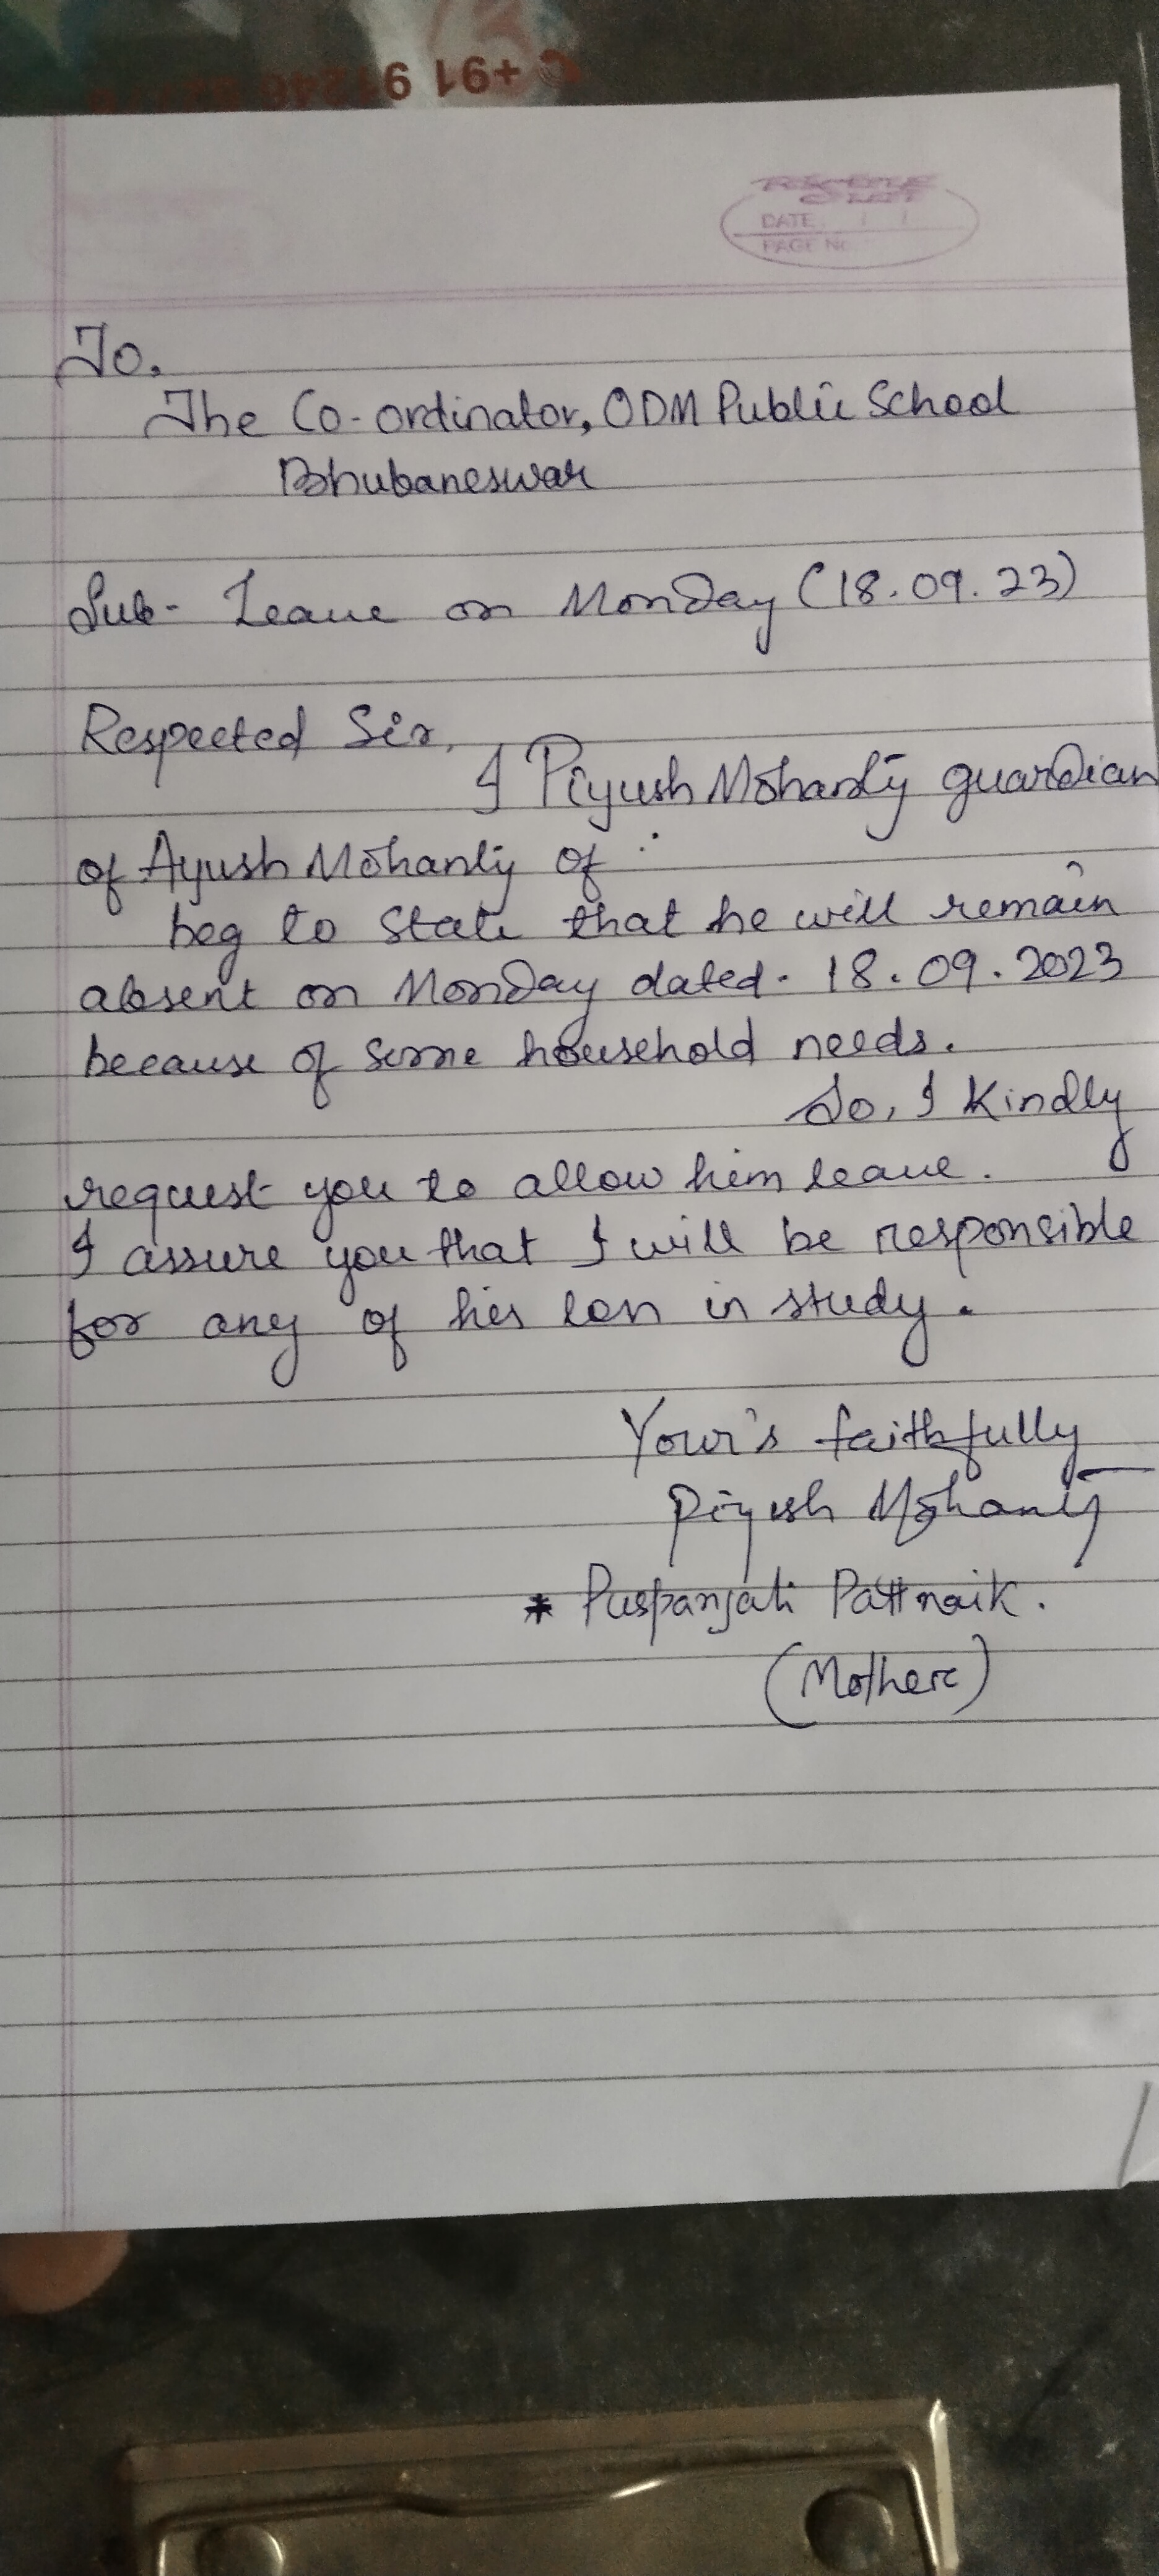 +91
DATE
PAGE No.
To.
The Co-ordinator, ODM Public School
Bhubaneswar
Sub- Leave on Monday (18.09.23)
Respected Sir,
I Piyush Mohanty guardian
of Ayush Mohanty of
beg to state that he will remain
absent on Monday dated - 18.09.2023
because of some household needs.
So, I Kindly
request you to allow him leave.
I assure you that I will be responsible
for any of his loss in study.
Your's faithfully
Piyush Mohanty
* Puspanjali Pattnaik.
(Mother)